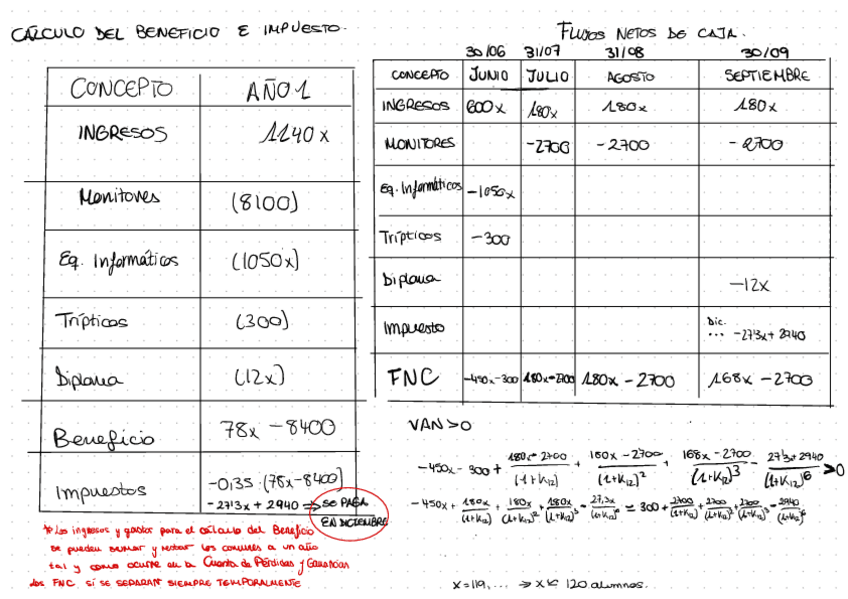 CÁLCULO DEL BENEFICIO E IMPUESTO.
CONCEPTO AÑO 1
INGRESOS 1140x
Monitores (8100)
Eq. Informáticos (1050x)
Trípticos (300)
Diploma (12x)
Beneficio 78x - 8400
Impuestos -0,35·(78x-8400)
-27,3x + 2940 ⇒ SE PAGA
EN DICIEMBRE
* Los ingresos y gastos para el cálculo del Beneficio
se pueden sumar y restar los comunes a un año
tal y como ocurre en la Cuenta de Pérdidas y Ganancias
Los FNC SÍ SE SEPARAN SIEMPRE TEMPORALMENTE
FLUJOS NETOS DE CAJA.
30/06 31/07 31/08 30/09
CONCEPTO JUNIO JULIO AGOSTO SEPTIEMBRE
INGRESOS 600x 180x 180x 180x
MONITORES -2700 -2700 -2700
Eq. Informáticos -1050x
Trípticos -300
Diploma -12x
Impuesto Dic. ... -27,3x + 2940
FNC -450x-300 180x-2700 180x-2700 168x-2700
VAN>0
-450x-300 + 180x-2700/(1+K12) + 180x-2700/(1+K12)² + 168x-2700/(1+K12)³ - 27,3x+2940/(1+K12)⁶ >0
-450x + 180x/(1+K12) + 180x/(1+K12)² + 180x/(1+K12)³ - 27,3x/(1+K12)⁶ = 300 + 2700/(1+K12) + 2700/(1+K12)² + 2700/(1+K12)³ - 2940/(1+K12)⁶
x=119,... ⇒ x≤ 120 alumnos.